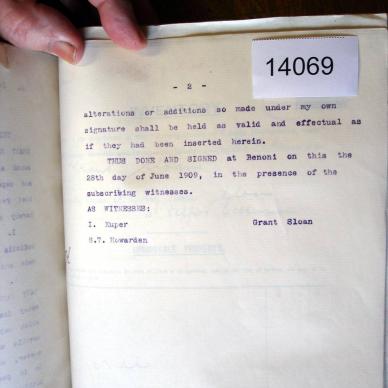 14069
- 2 -
alterations or additions so made under my own
signature shall be held as valid and effectual as
if they had been inserted herein.
THUS DONE AND SIGNED at Benoni on this the
28th day of June 1909, in the presence of the
subscribing witnesses.
AS WITNESSES:
I. Kuper Grant Sloan
S.T. Howarden